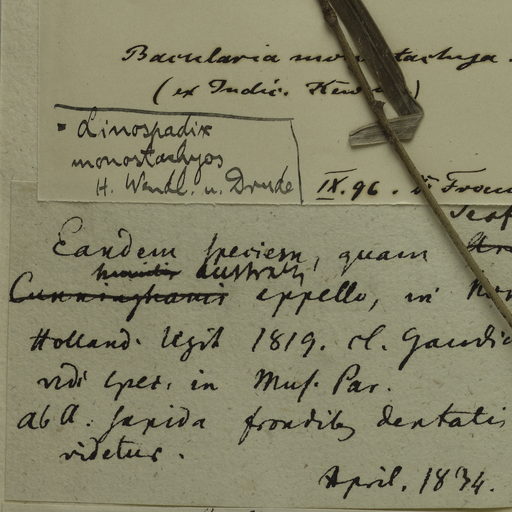 Bacularia monostachya
(ex Indic. Kew )
= Linospadix
monostachyos
H. Wendl. u. Drude
IX. 96.
Eandem speciem, quam
australi
Cunninghamis appello, in
Holland. legit 1819. cl. Gaudic
vidi spec. in Mus. Par.
ab A. sapida frondibus dentatis
videtur.
April. 1834.